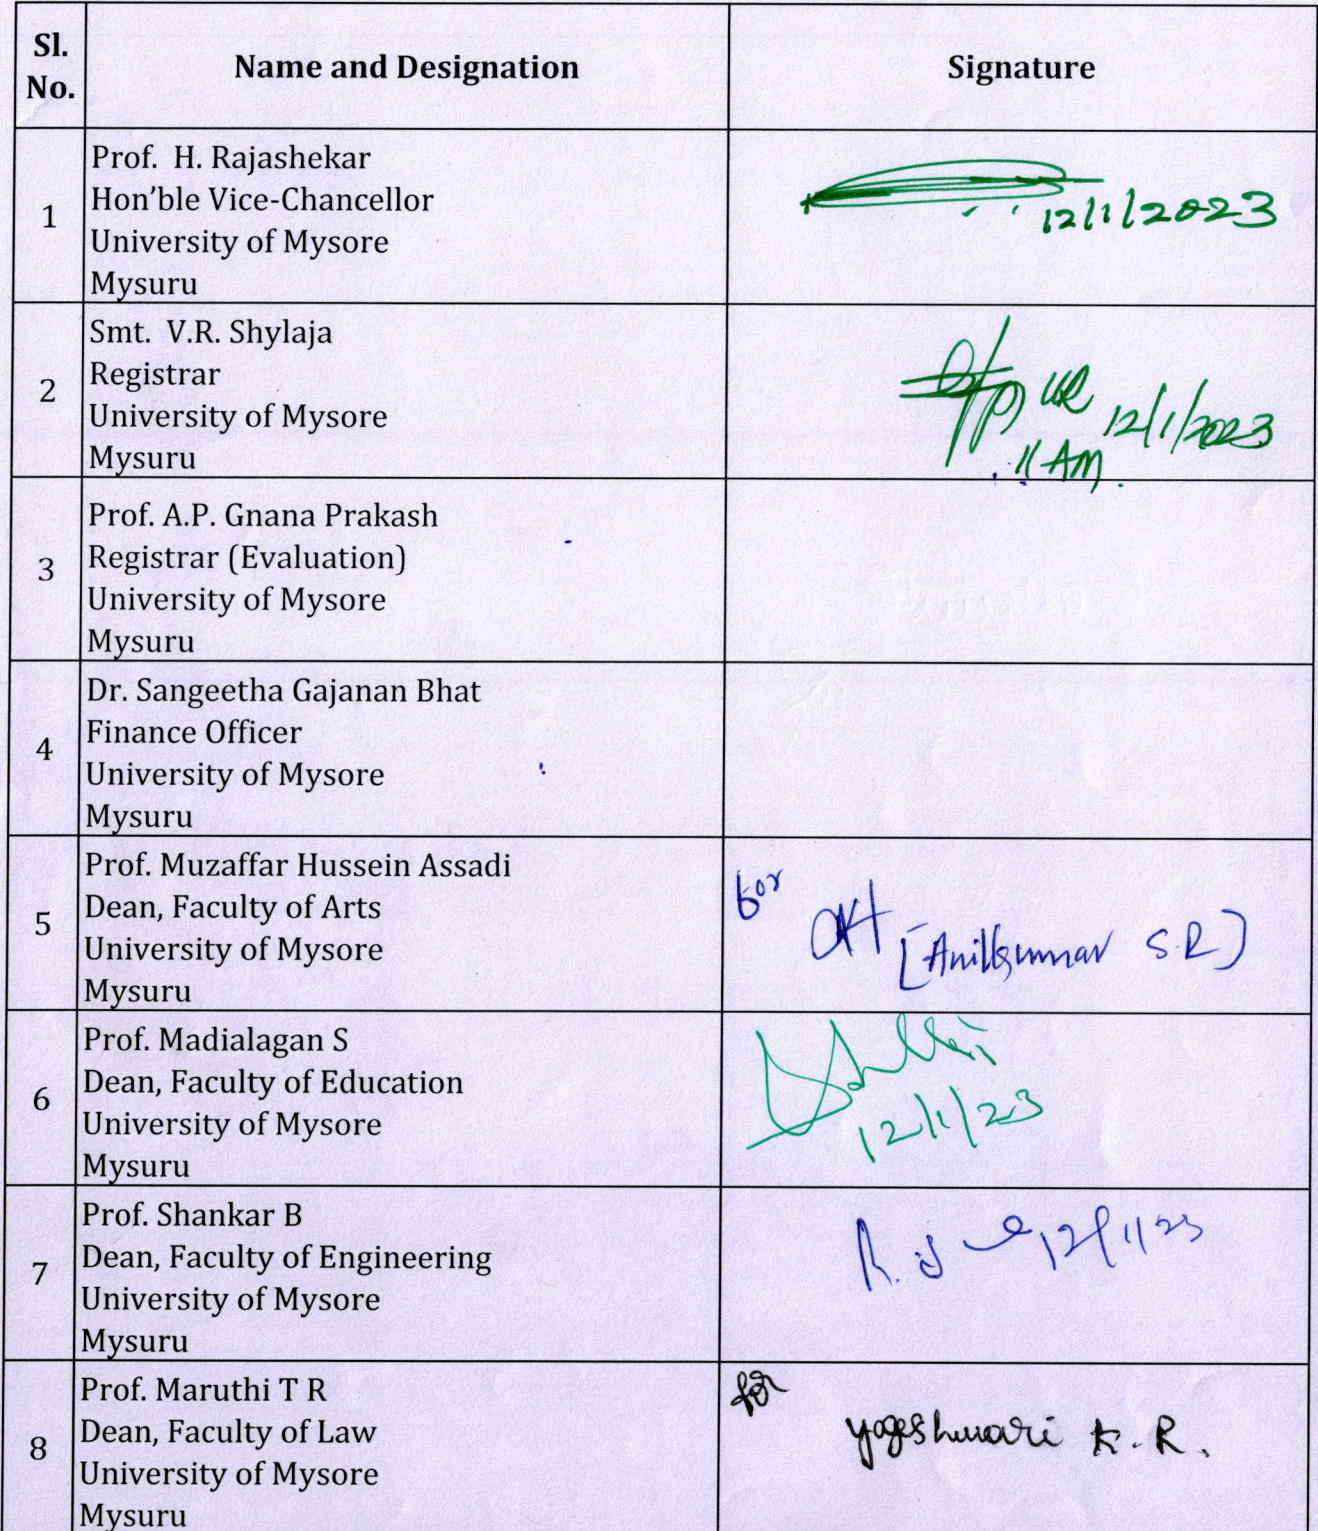 Sl. No.
Name and Designation
Signature
1
Prof. H. Rajashekar
Hon'ble Vice-Chancellor
University of Mysore
Mysuru
12/1/2023
2
Smt. V.R. Shylaja
Registrar
University of Mysore
Mysuru
12/1/2023
11 AM
3
Prof. A.P. Gnana Prakash
Registrar (Evaluation)
University of Mysore
Mysuru
4
Dr. Sangeetha Gajanan Bhat
Finance Officer
University of Mysore
Mysuru
5
Prof. Muzaffar Hussein Assadi
Dean, Faculty of Arts
University of Mysore
Mysuru
for
[Anilkumar S.R]
6
Prof. Madialagan S
Dean, Faculty of Education
University of Mysore
Mysuru
12/1/23
7
Prof. Shankar B
Dean, Faculty of Engineering
University of Mysore
Mysuru
12/1/23
8
Prof. Maruthi T R
Dean, Faculty of Law
University of Mysore
Mysuru
for
Yogeshwari K.R.